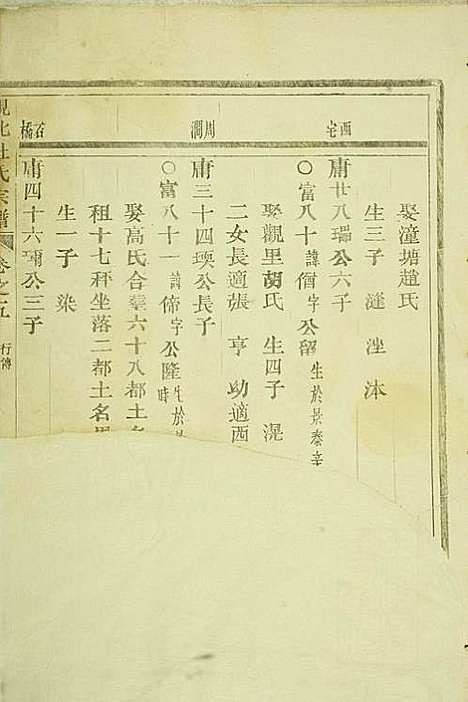 娶潼塘趙氏
生三子 漨 浬 沐
西宅
庸廿八瑞公六子
○富八十 諱僧字公留 生於景泰辛
娶觀里胡氏 生四子 滉
二女長適張 亨 助適西
周澗
庸三十四瑛公長子
○富八十一 諱 字公隆 生於 時
娶高氏合葬六十八都土名
租十七秤坐落二都土名
生一子 染
石橋
庸四十六 公三子
北杜氏宗譜 卷之五 行傳